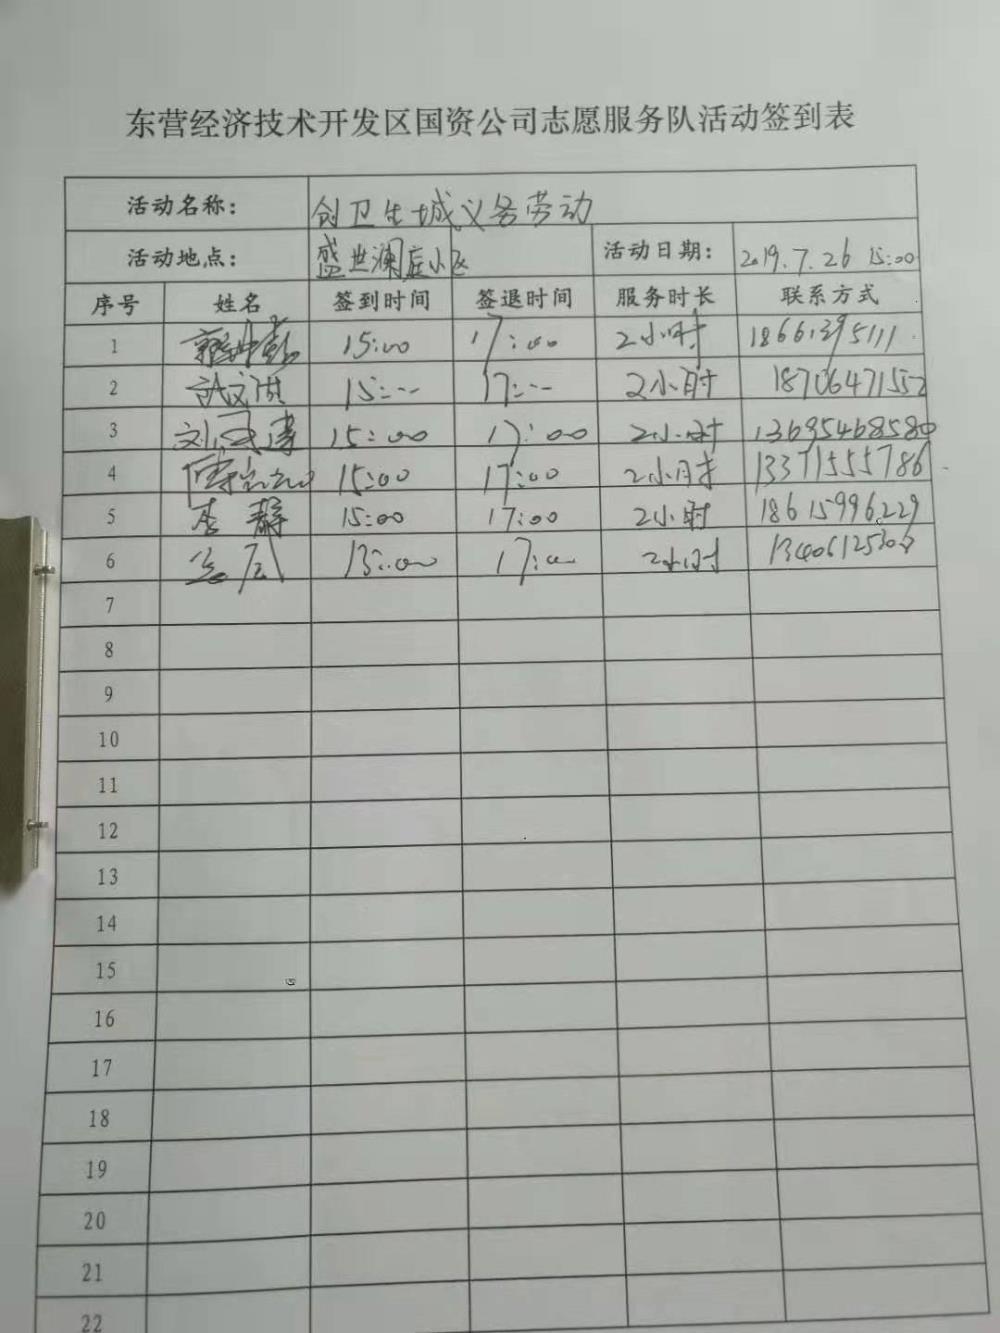 东营经济技术开发区国资公司志愿服务队活动签到表
活动名称： 创卫生城义务劳动
活动地点： 盛世澜庭小区 活动日期： 2019.7.26 15:00
序号 姓名 签到时间 签退时间 服务时长 联系方式
1 15:00 17:00 2小时 18661395111
2 15:00 17:00 2小时 18706471552
3 15:00 17:00 2小时 13695468580
4 15:00 17:00 2小时 13371555786
5 李静 15:00 17:00 2小时 18615996229
6 17:00 2小时
7
8
9
10
11
12
13
14
15
16
17
18
19
20
21
22